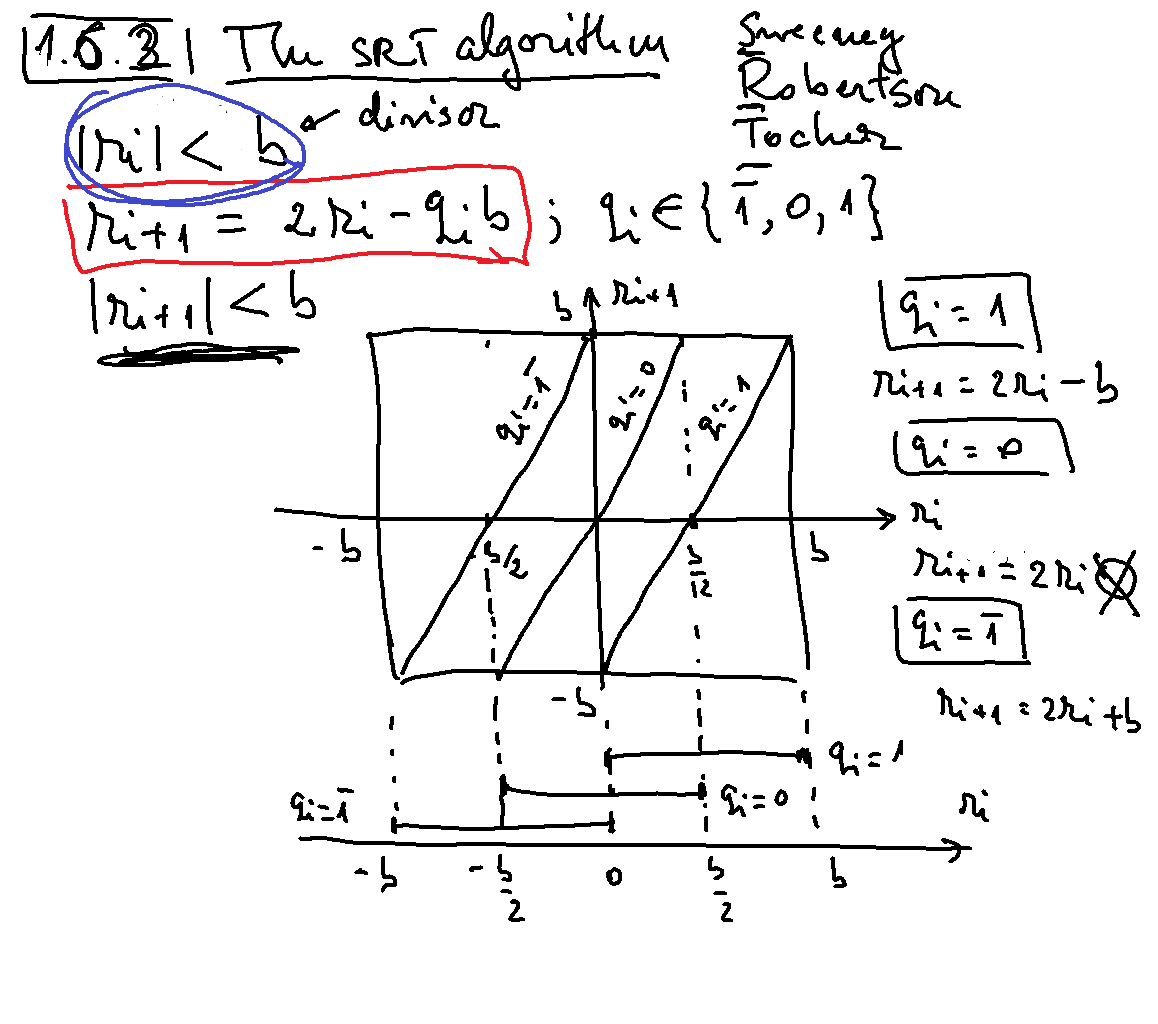 1.6.3 The SRT algorithm
Sweeney
Robertson
Tocher
|ri| < b ← divisor
ri+1 = 2ri - qib ; qi ∈ {1̅, 0, 1}
|ri+1| < b
b ri+1
qi=1̅ qi=0 qi=1
-b -b/2 b/2 b ri
-b
qi = 1
ri+1 = 2ri - b
qi = 0
ri+1 = 2ri
qi = 1̅
ri+1 = 2ri + b
qi=1
qi=0
qi=1̅
ri
-b -b/2 0 b/2 b